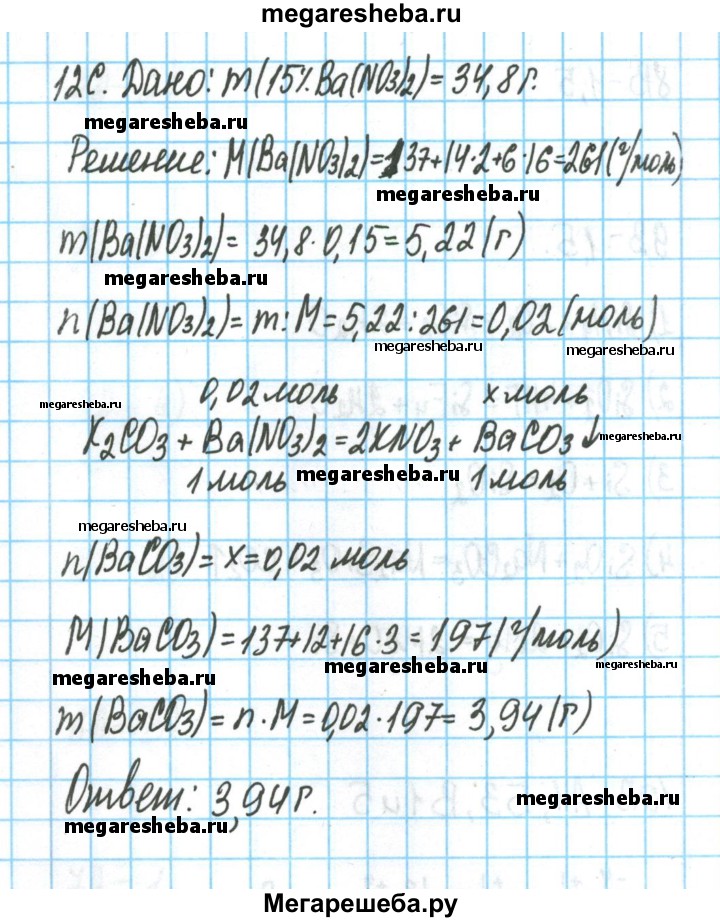 megaresheba.ru
12С. Дано: m(15% Ba(NO3)2) = 34,8 г.
megaresheba.ru
Решение: M(Ba(NO3)2) = 137+14·2+6·16=261(г/моль)
megaresheba.ru
m(Ba(NO3)2) = 34,8·0,15=5,22(г)
megaresheba.ru
n(Ba(NO3)2) = m:M=5,22:261=0,02(моль)
megaresheba.ru megaresheba.ru
0,02 моль x моль
megaresheba.ru
K2CO3 + Ba(NO3)2 = 2KNO3 + BaCO3↓
megaresheba.ru
1 моль megaresheba.ru 1 моль
megaresheba.ru
n(BaCO3) = x = 0,02 моль
M(BaCO3) = 137+12+16·3 = 197(г/моль)
megaresheba.ru megaresheba.ru megaresheba.ru
m(BaCO3) = n·M = 0,02·197 = 3,94(г)
Ответ: 3,94 г.
megaresheba.ru megaresheba.ru
Мегарешеба.ру